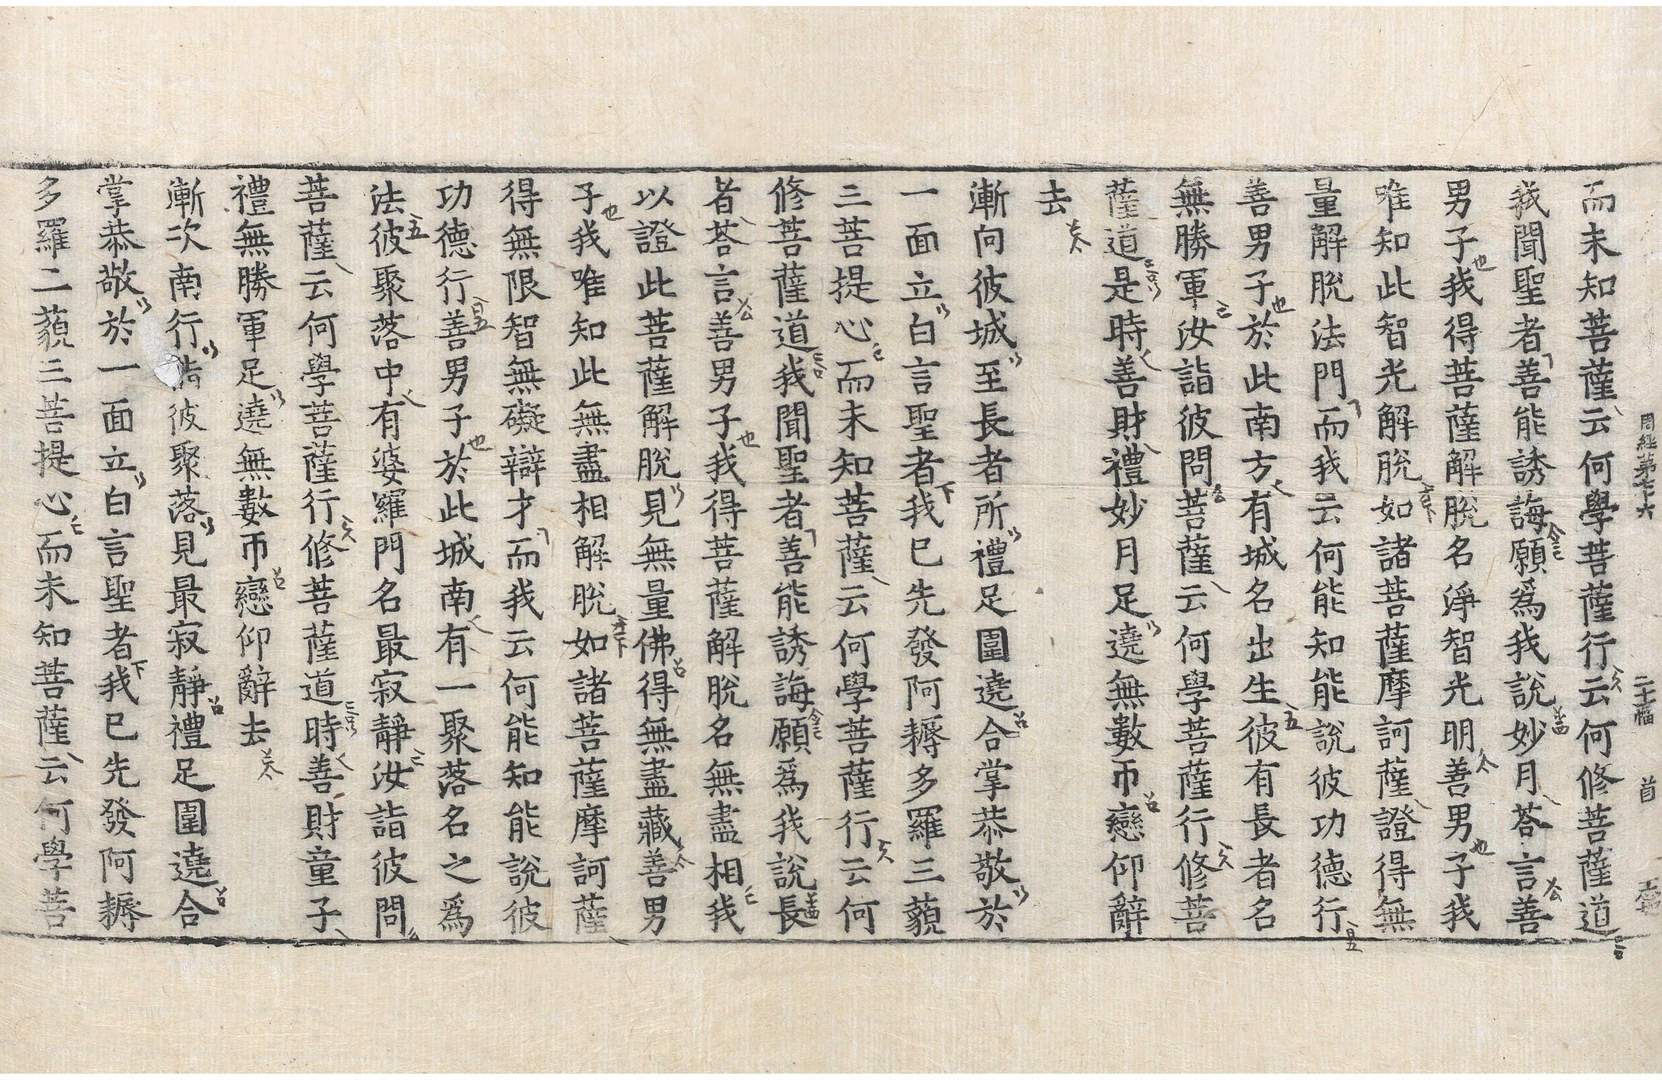 周經第七十六　二十幅　首
而未知菩薩云何學菩薩行云何修菩薩道
我聞聖者善能誘誨願為我說妙月荅言善
男子我得菩薩解脫名淨智光明善男子我
唯知此智光解脫如諸菩薩摩訶薩證得無
量解脫法門而我云何能知能說彼功德行
善男子於此南方有城名出生彼有長者名
無勝軍汝詣彼問菩薩云何學菩薩行修菩
薩道是時善財禮妙月足遶無數帀戀仰辭
去
漸向彼城至長者所禮足圍遶合掌恭敬於
一面立白言聖者我已先發阿耨多羅三藐
三菩提心而未知菩薩云何學菩薩行云何
修菩薩道我聞聖者善能誘誨願為我說長
者荅言善男子我得菩薩解脫名無盡相我
以證此菩薩解脫見無量佛得無盡藏善男
子我唯知此無盡相解脫如諸菩薩摩訶薩
得無限智無礙辯才而我云何能知能說彼
功德行善男子於此城南有一聚落名之為
法彼聚落中有婆羅門名最寂靜汝詣彼問
菩薩云何學菩薩行修菩薩道時善財童子
禮無勝軍足遶無數帀戀仰辭去
漸次南行詣彼聚落見最寂靜禮足圍遶合
掌恭敬於一面立白言聖者我已先發阿耨
多羅二藐三菩提心而未知菩薩云何學菩